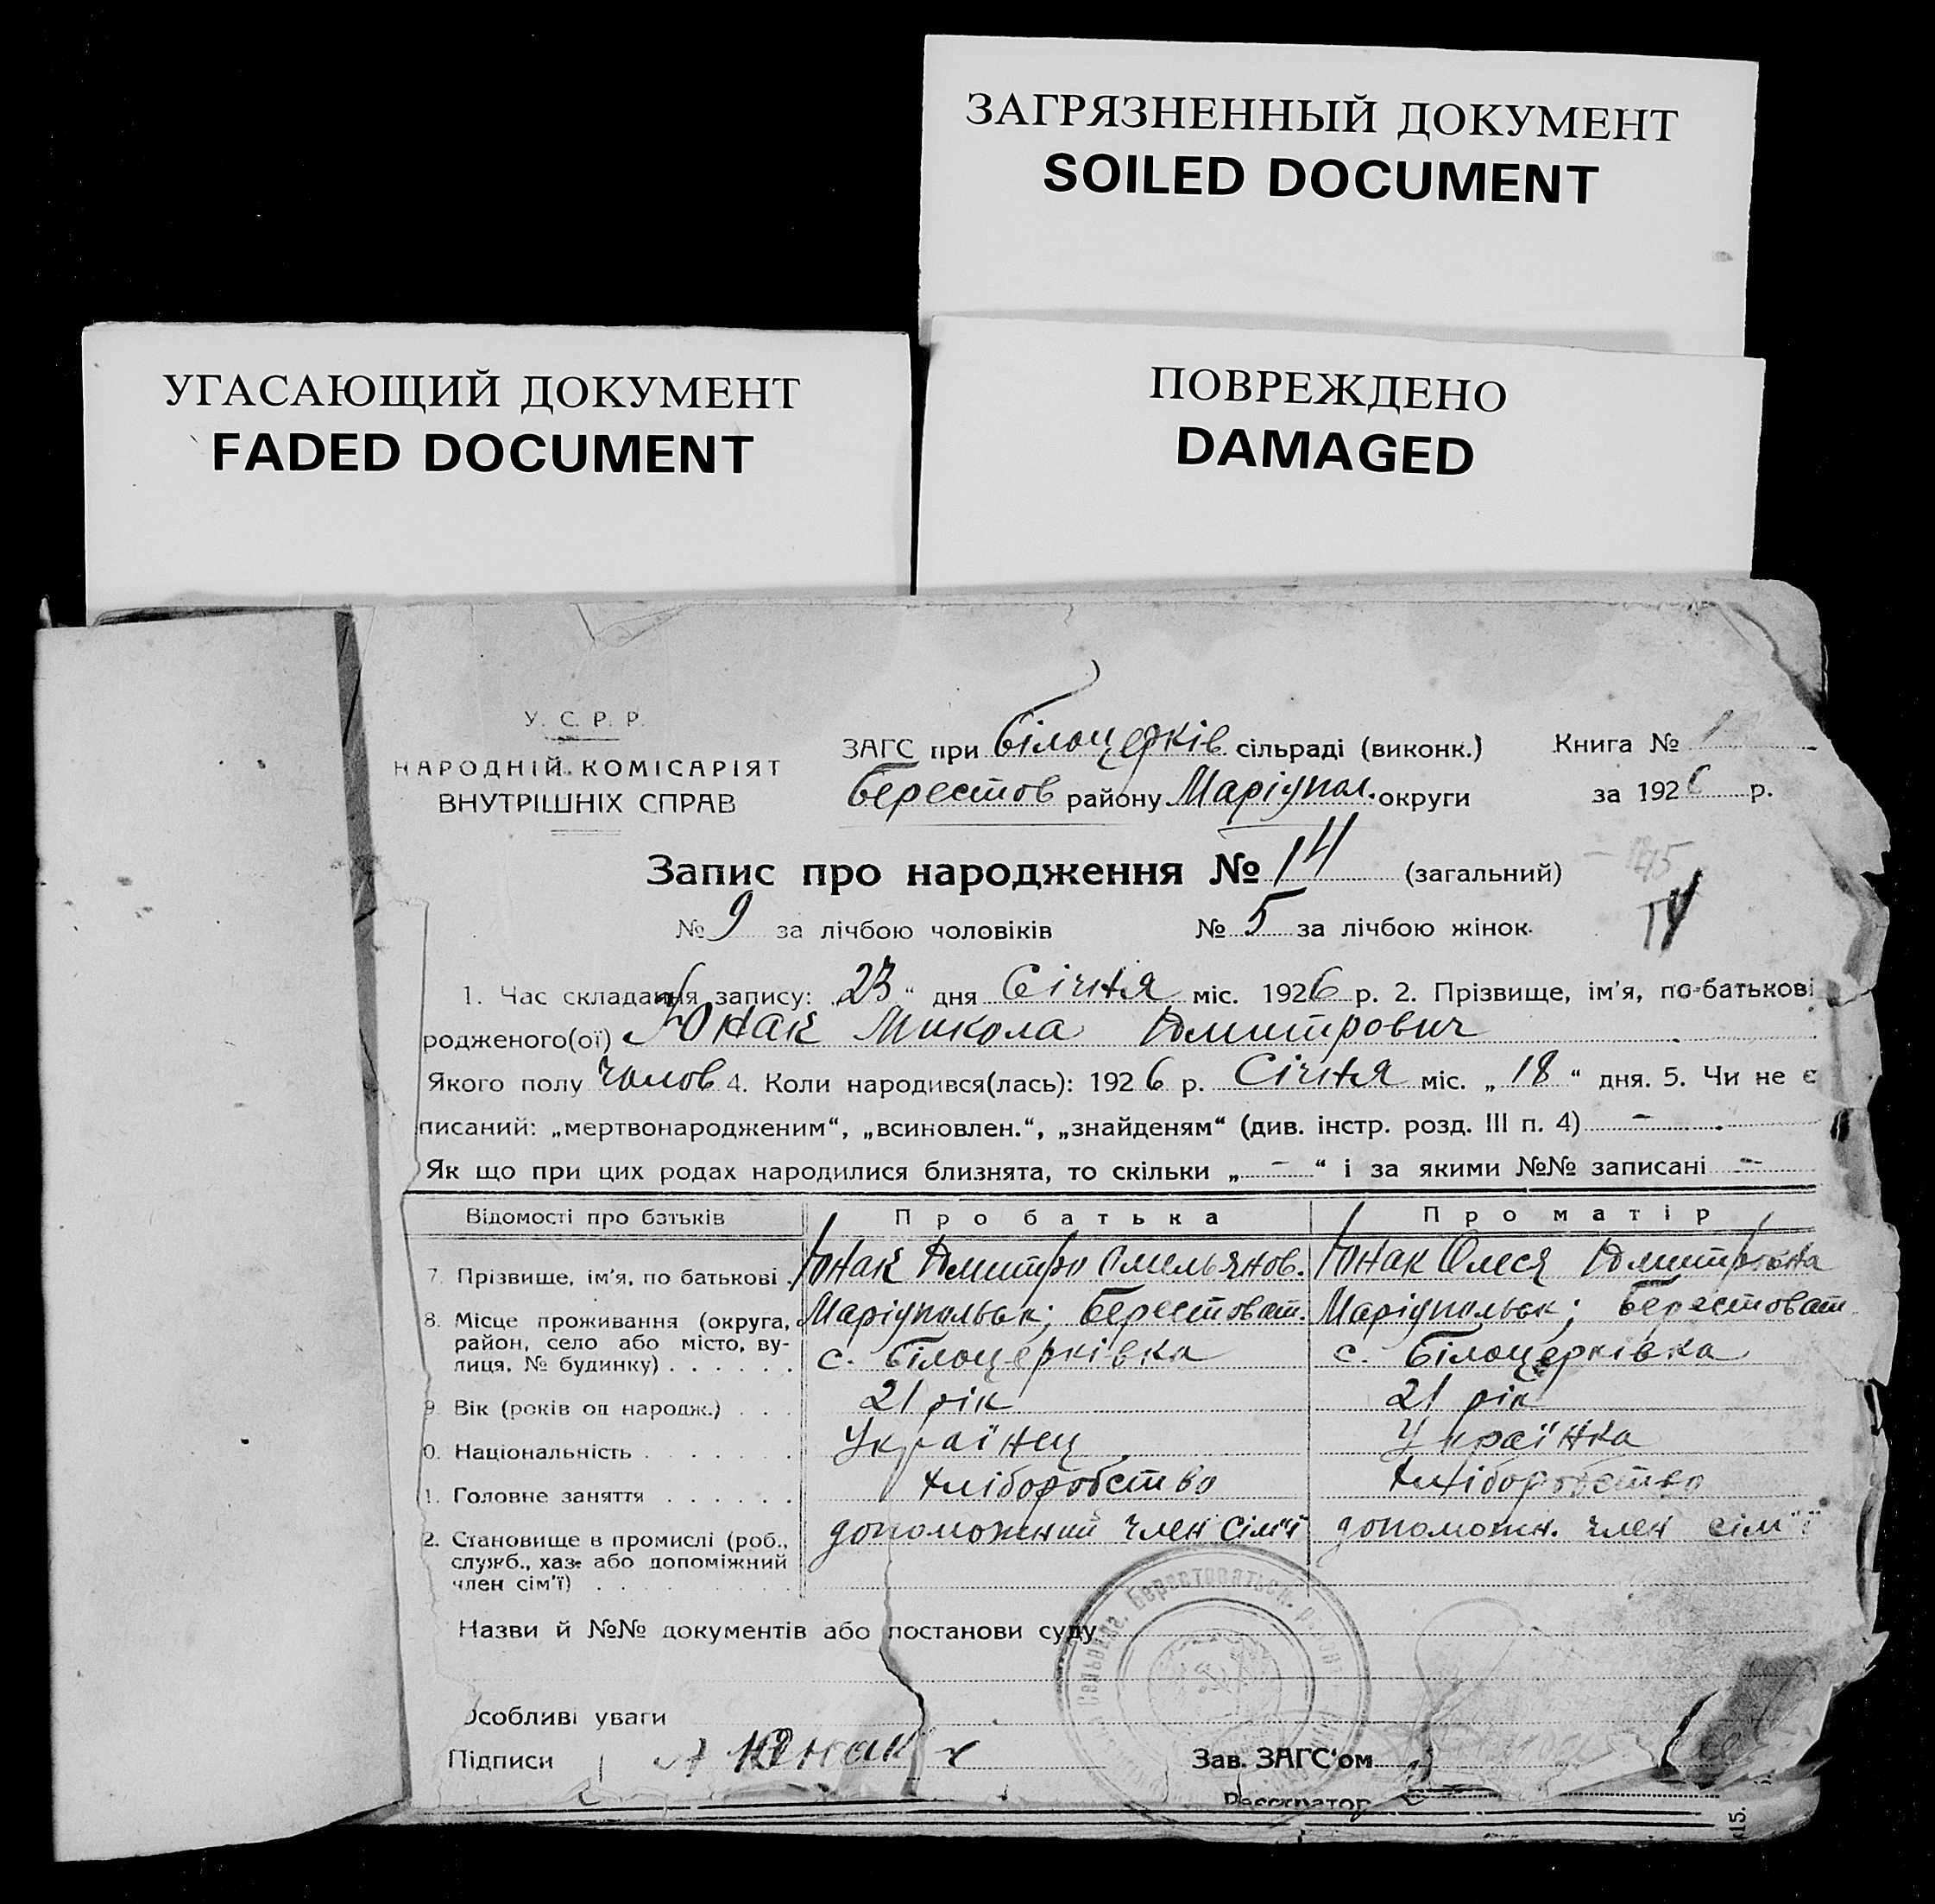 ЗАГРЯЗНЕННЫЙ ДОКУМЕНТ
SOILED DOCUMENT
УГАСАЮЩИЙ ДОКУМЕНТ
FADED DOCUMENT
ПОВРЕЖДЕНО
DAMAGED
У. С. Р. Р.
НАРОДНІЙ КОМІСАРІЯТ
ВНУТРІШНІХ СПРАВ
ЗАГС при Білоцерків сільраді (виконк.)
Берестов району Маріупол. округи
Книга № 1
за 1926 р.
Запис про народження № 14 (загальний)
№ 9 за лічбою чоловіків № 5 за лічбою жінок
1. Час складання запису: 23 " дня Січня міс. 1926 р. 2. Прізвище, ім'я, по-батькові
родженого(ої) Юнак Микола Дмитрович
Якого полу чолов 4. Коли народився(лась): 1926 р. Січня міс. „ 18 " дня. 5. Чи не є
писаний: „мертвонародженим", „всиновлен.", „знайденям" (див. інстр. розд. III п. 4) -
Як що при цих родах народилися близнята, то скільки „ - " і за якими №№ записані -
Відомості про батьків
Про батька
Про матір
7. Прізвище, ім'я, по батькові
Юнак Дмитро Омельянов.
Юнак Олеся Дмитровна
8. Місце проживання (округа,
район, село або місто, ву-
лиця, № будинку)
Маріупольськ; Берестоват.
с. Білоцерківка
Маріупольськ; Берестоват.
с. Білоцерківка
9 Вік (років од народж.)
21 рік
21 рік
0. Національність
Українец
Українка
1. Головне заняття
Хліборобство
Хліборобство
2. Становище в промислі (роб.,
служб., хаз. або допоміжний
член сім'ї)
допоможний член сім"ї
допоможн. член сім"ї
Назви й №№ документів або постанови суду
Особливі уваги
Підписи Юнак
Зав. ЗАГС'ом
Реєстратор
15.